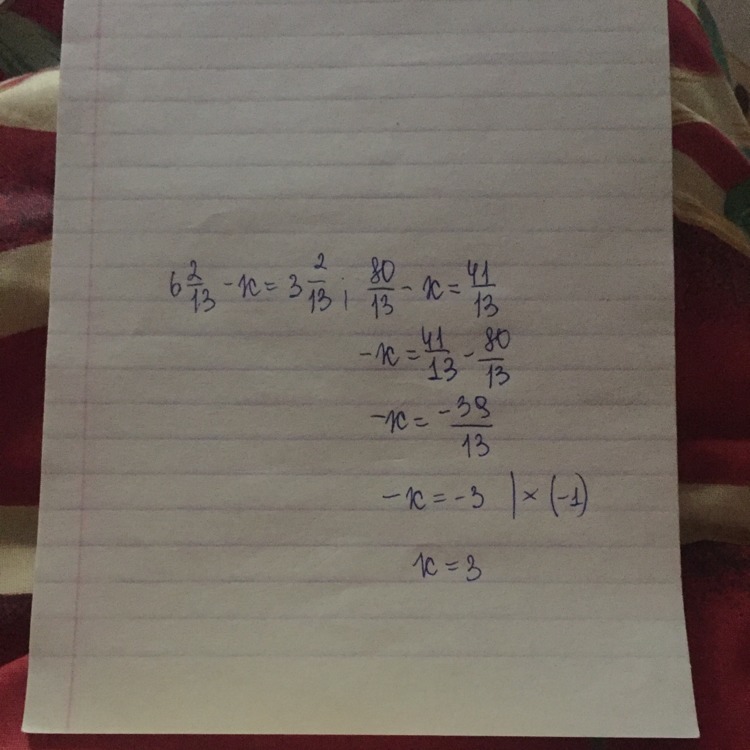 6 2/13 - x = 3 2/13 ; 80/13 - x = 41/13
-x = 41/13 - 80/13
-x = -39/13
-x = -3 | × (-1)
x = 3